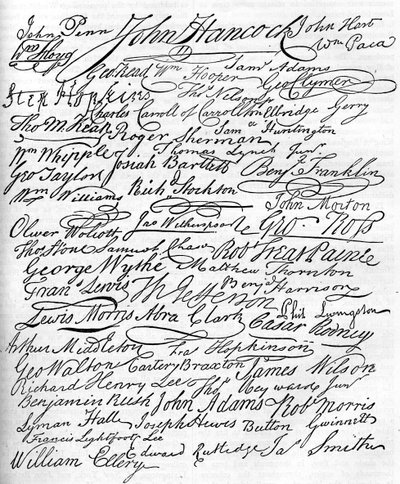 John Penn John Hancock John Hart
Wm Floyd Wm Paca
Geo Read Wm Hooper Saml Adams
Geo Clymer
Step Hopkins Thos Nelson jr
Charles Carroll of Carrollton Elbridge Gerry
Tho M:Kean Roger Sherman Saml Huntington
Wm Whipple Thomas Lynch Junr
Geo Taylor Josiah Bartlett Benj Franklin
Wm Williams Richd Stockton John Morton
Oliver Wolcott Jno Witherspoon Geo. Ross
Thos Stone Samuel Chase Robt Treat Paine
George Wythe Matthew Thornton
Frans Lewis Th Jefferson Benj Harrison
Lewis Morris Abra Clark Caesar Rodney Phil Livingston
Arthur Middleton Fras Hopkinson
Geo Walton Carter Braxton James Wilson
Richard Henry Lee Thos Heyward Junr
Benjamin Rush John Adams Robt Morris
Lyman Hall Joseph Hewes Button Gwinnett
Francis Lightfoot Lee
William Ellery Edward Rutledge Jas Smith